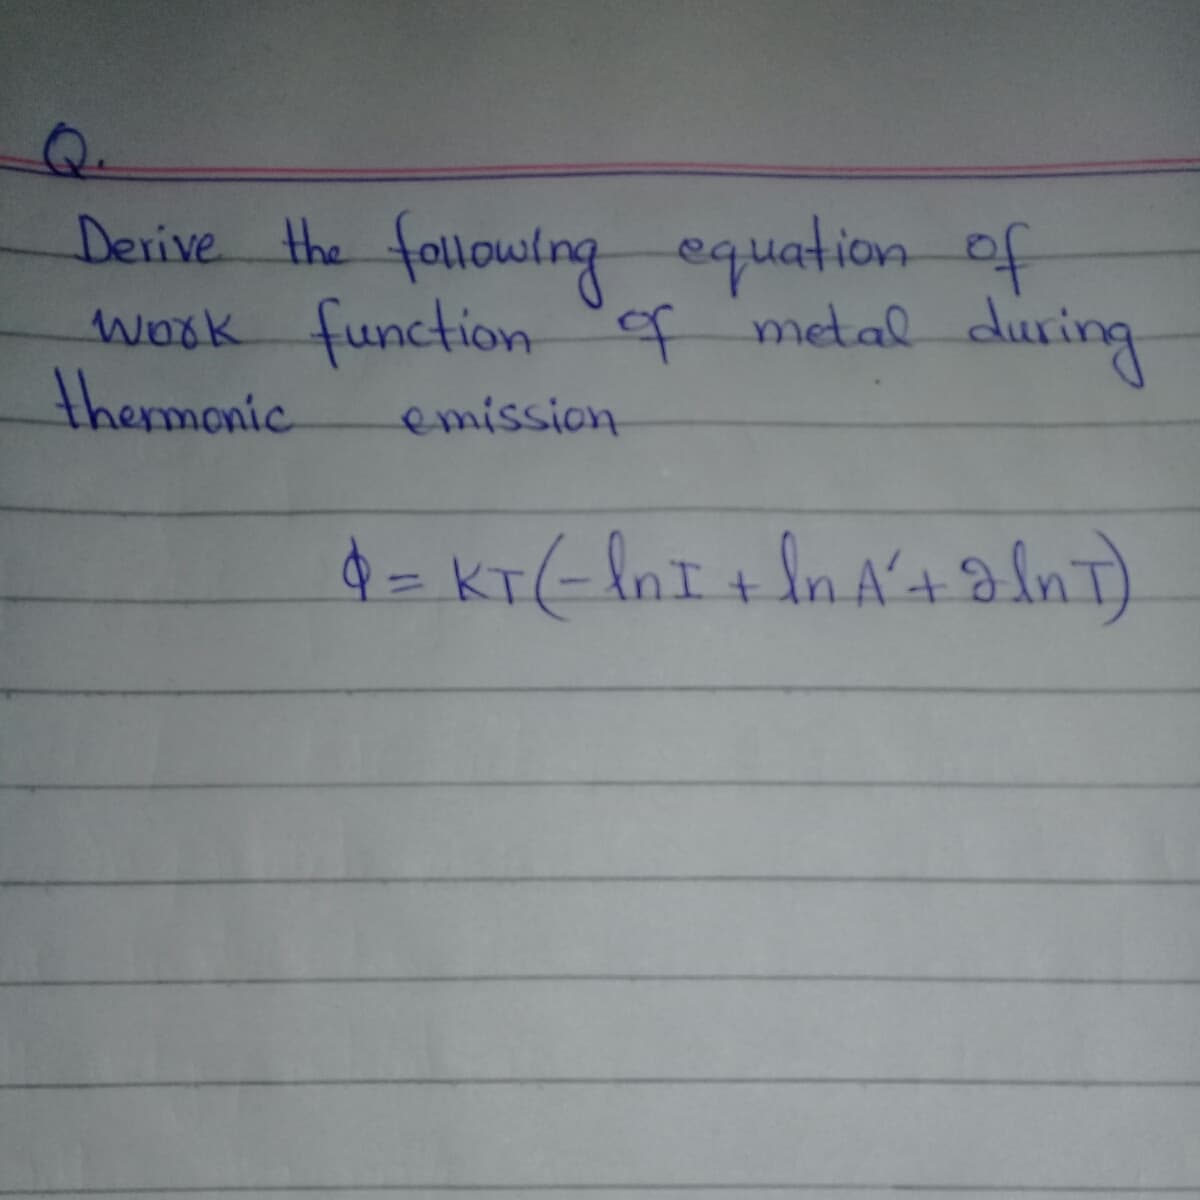 Q.
Derive the following equation of
work function of metal during
thermonic emission
ϕ = KT(-lnI + ln A′+ 2lnT)